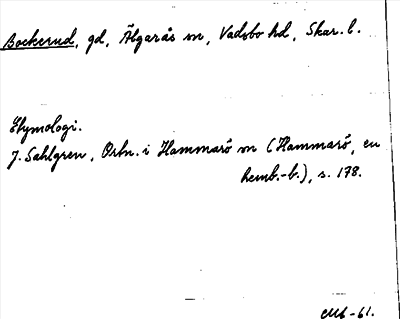 Bockerud, gd, Älgarås sn, Vadsbo hd, Skar. l.
Etymologi.
J. Sahlgren, Ortn. i Hammarö sn (Hammarö, en
hemb.-b.), s. 178.
CMb -61.